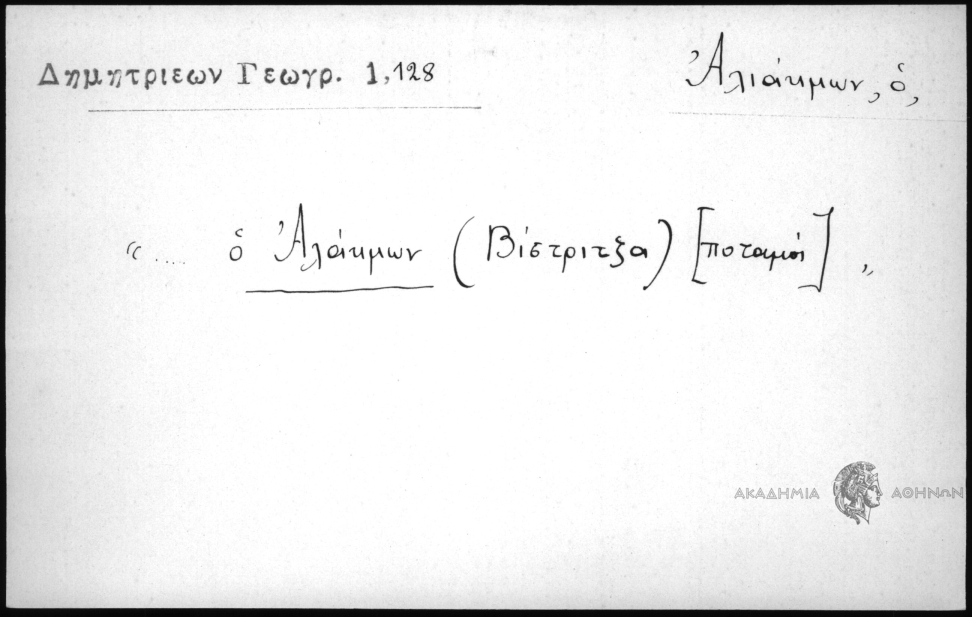 Δημητριεων Γεωγρ. 1,128
Ἀλιάκμων, ὁ,
"..... ὁ Ἀλάκμων (Βίστριτξα) [ποταμοί] "
ΑΚΑΔΗΜΙΑ ΑΘΗΝΩΝ